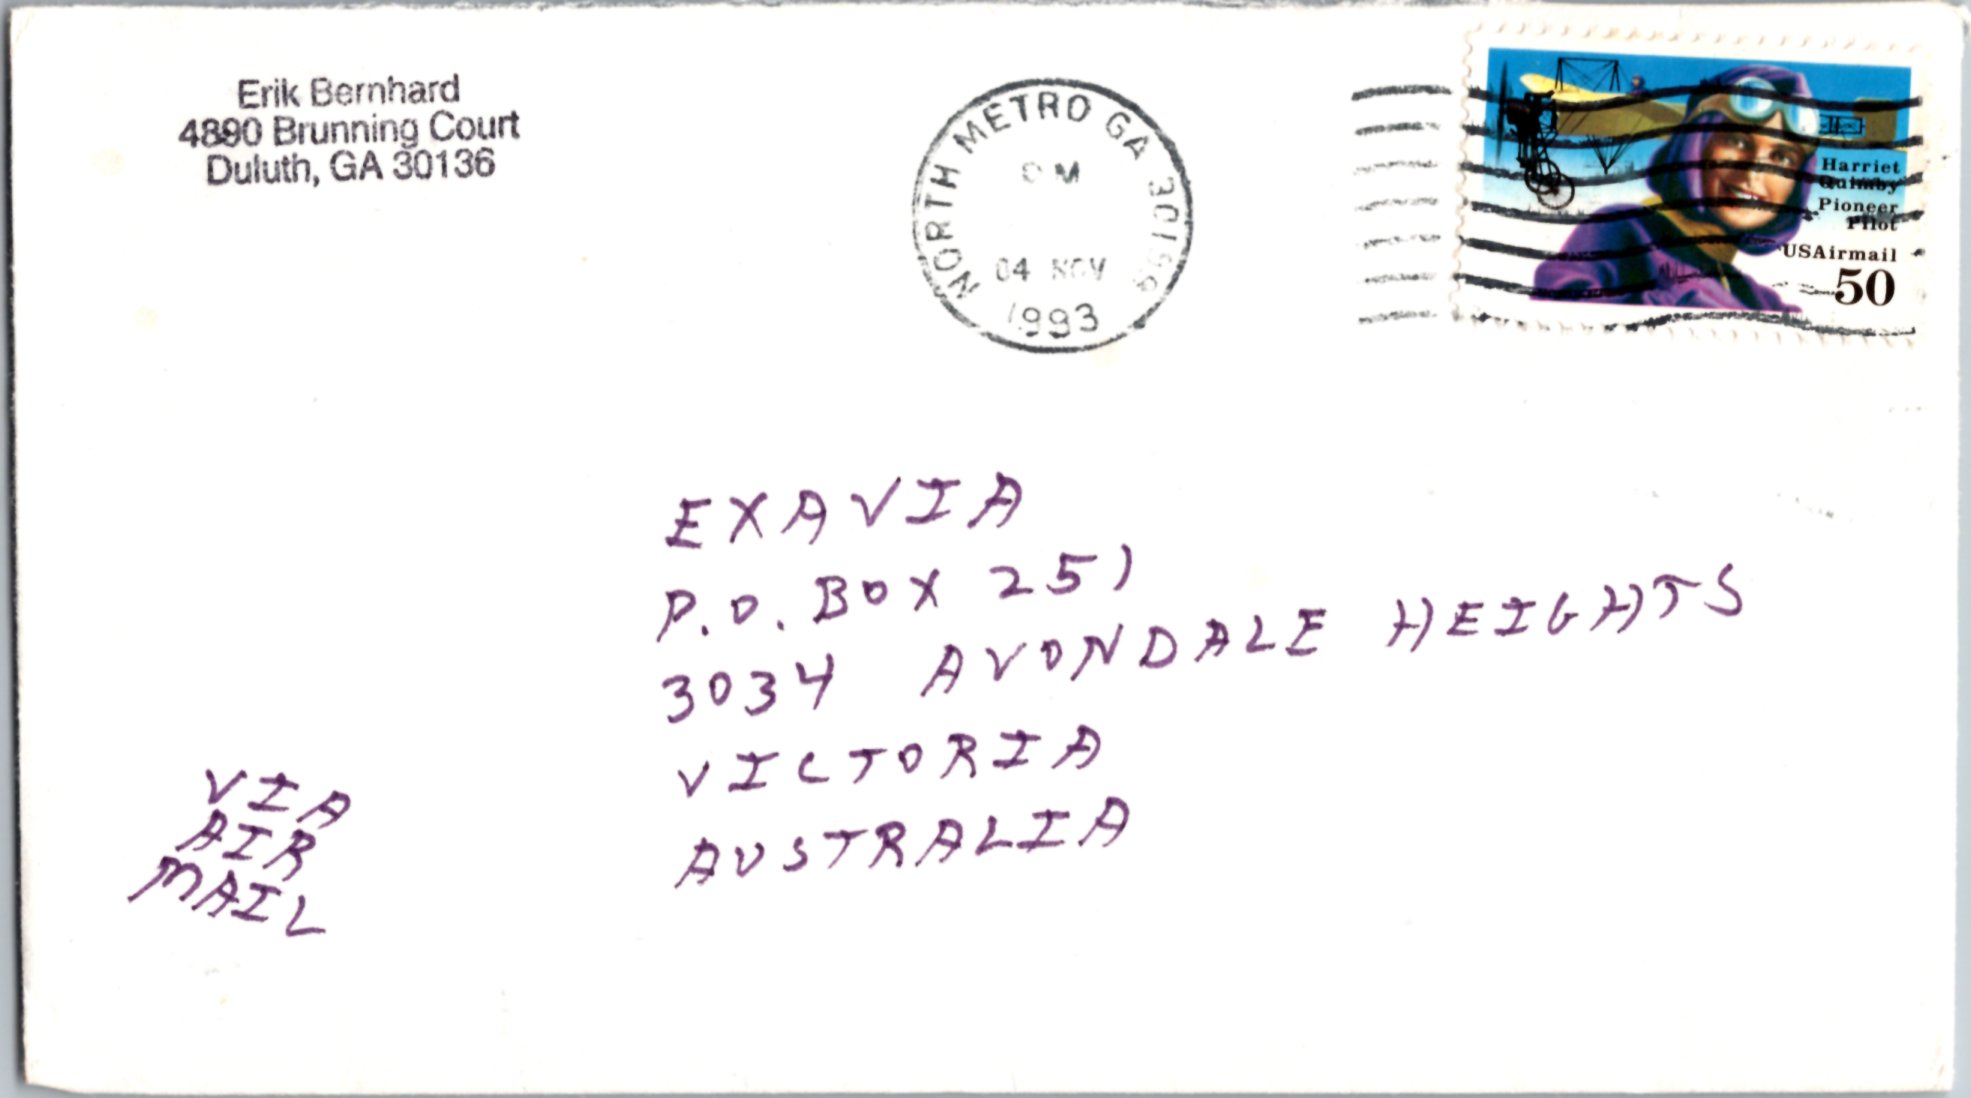 Erik Bernhard
4890 Brunning Court
Duluth, GA 30136
NORTH METRO GA
04 NOV
1993
Harriet
Quimby
Pioneer
Pilot
USAirmail
50
EXAVIA
P.O. BOX 251
3034 AVONDALE HEIGHTS
VICTORIA
AUSTRALIA
VIA
AIR
MAIL